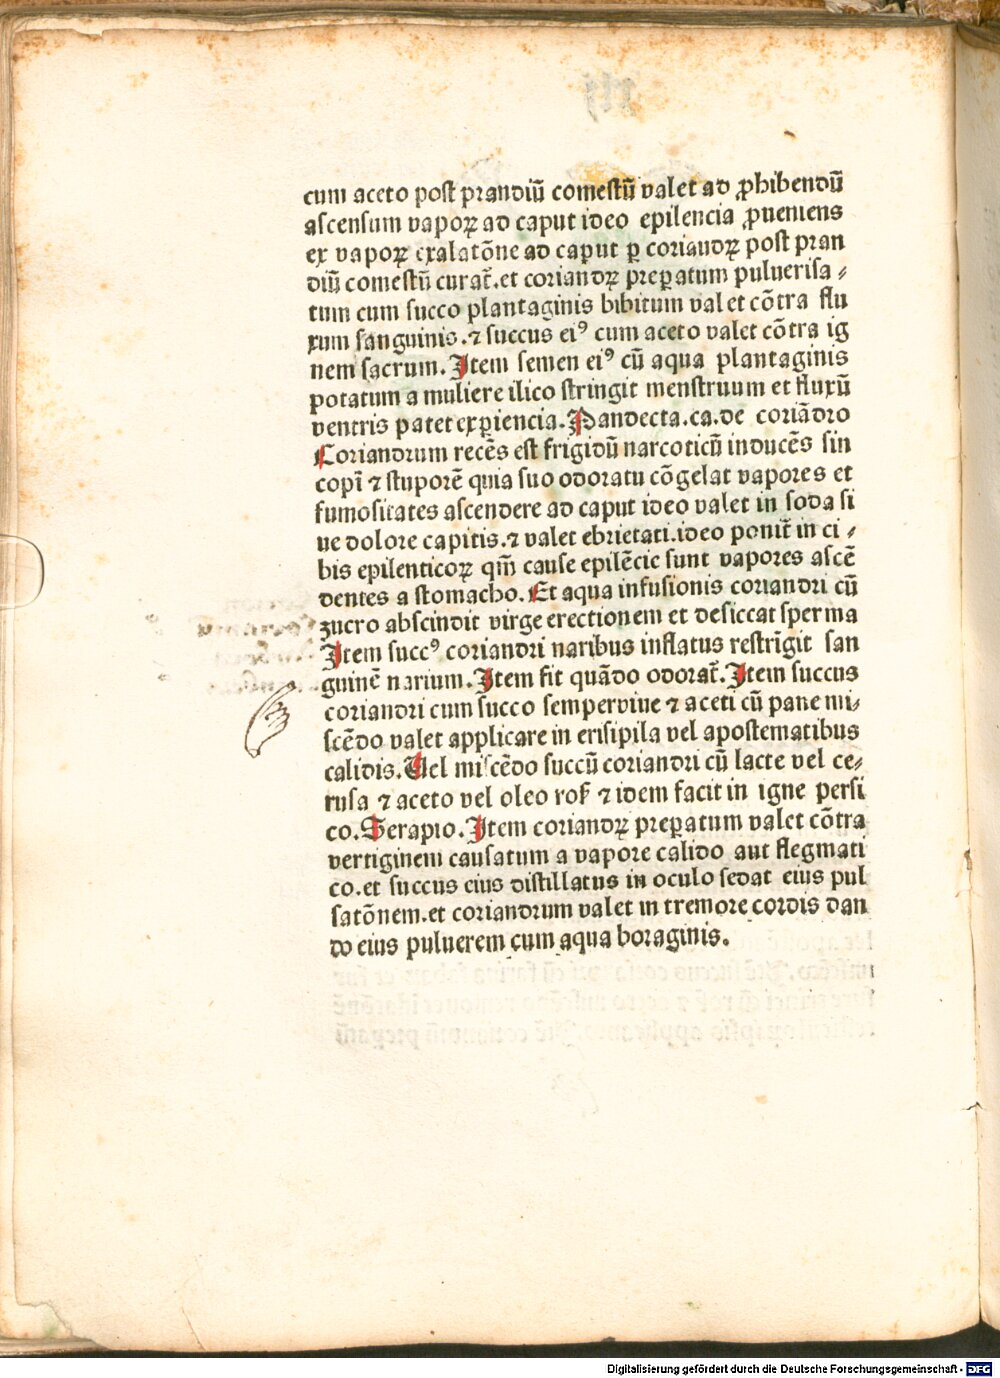 cum aceto post prandiū comestū valet ad ꝓhibendū
ascensum vapoꝝ ad caput ideo epilencia ꝓueniens
ex vapoꝝ exalatōne ad caput ꝑ coriandꝝ post pran
diū comestū curat̄.et coriandꝝ preꝑatum puluerisa⸗
tum cum succo plantaginis bibitum valet cōtra flu
xum sanguinis.⁊ succus eiꝰ cum aceto valet cōtra ig
nem sacrum.Item semen eiꝰ cū aqua plantaginis
potatum a muliere ilico stringit menstruum et fluxū
ventris patet exꝑiencia.Pandecta.ca.de coriādro
Coriandrum recēs est frigidū narcoticū inducēs sin
copī ⁊ stuporē quia suo odoratu cōgelat vapores et
fumositates ascendere ad caput ideo valet in soda si
ue dolore capitis.⁊ valet ebrietati.ideo ponit̄ in ci⸗
bis epilenticoꝝ qm̄ cause epilēcie sunt vapores ascē
dentes a stomacho.Et aqua infusionis coriandri cū
zucro abscindit virge erectionem et desiccat sperma
Item succꝰ coriandri naribus inflatus restrīgit san
guinē narium.Item fit quādo odorat̄.Item succus
coriandri cum succo semperviue ⁊ aceti cū pane mi⸗
scēdo valet applicare in erisipila vel apostematibus
calidis.Uel miscēdo succū coriandri cū lacte vel ce⸗
rusa ⁊ aceto vel oleo ros̄ ⁊ idem facit in igne persi
co.Serapio.Item coriandꝝ preꝑatum valet cōtra
vertiginem causatum a vapore calido aut flegmati
co.et succus eius distillatus in oculo sedat eius pul
satōnem.et coriandrum valet in tremore cordis dan
do eius puluerem cum aqua boraginis.
Digitalisierung gefördert durch die Deutsche Forschungsgemeinschaft - DFG